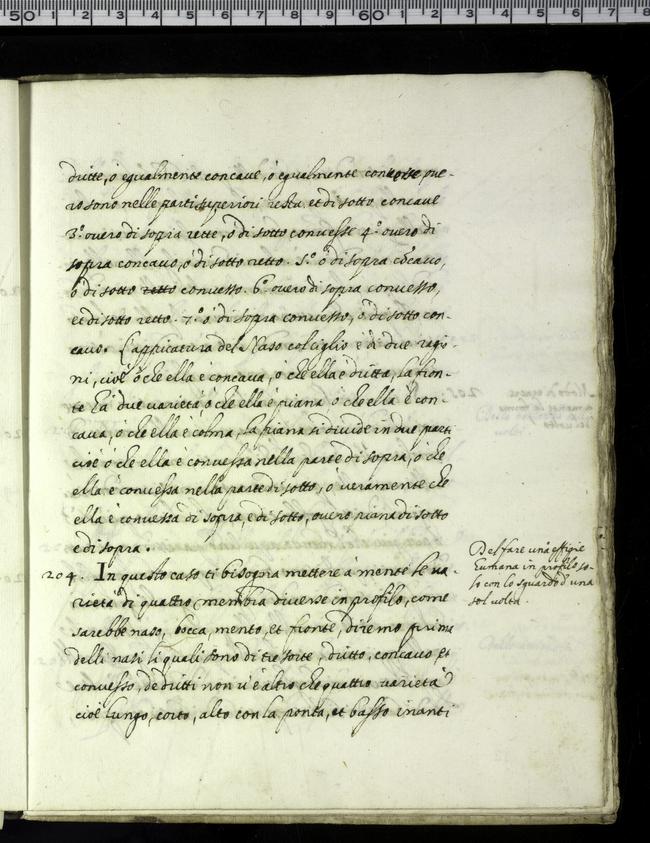 dritte, ò egualmente concave, ò egualmente convesse pue-
ro sono nelle parti superiori retta, et di sotto concave
3.º overo di sopra rette, ò di sotto convesse 4.º overo di
sopra concavo, ò di sotto retto. 5.º ò di sopra cõcavo,
ò di sotto retto convesso. 6.º overo di sopra convesso,
et di sotto retto. 7.º ò di sopra convesso, ò di sotto con-
cavo. L'appicatura del Naso col ciglio è à due ragio-
ni, cioè ò che ella è concava, ò che ella è dritta, la fron-
te hà due varietà, ò che ella è piana ò che ella è con-
cava, ò che ella è colma, la piana si divide in due parti
cioè ò che ella è convessa nella parte di sopra, ò che
ella è convessa nella parte di sotto, ò veramente che
ella è convessa di sopra, e di sotto, overo piana di sotto
e di sopra.
204. In questo caso ti bisogna mettere à mente le va-
rietà di quattro membra diverse in profilo, come
sarebbe naso, bocca, mento, et fronte, diremo prima
delli nasi li quali sono di tre sorte, dritto, concavo, et
convesso, de dritti non v'è altro che quattro varietà
cioè lungo, corto, alto con la ponta, et basso inanti
Del fare un'a effigie
humana in profilo so-
lo con lo sguardo d'una
sol volta.
50 1 2 3 4 5 6 7 8 9 60 1 2 3 4 5 6 7 8